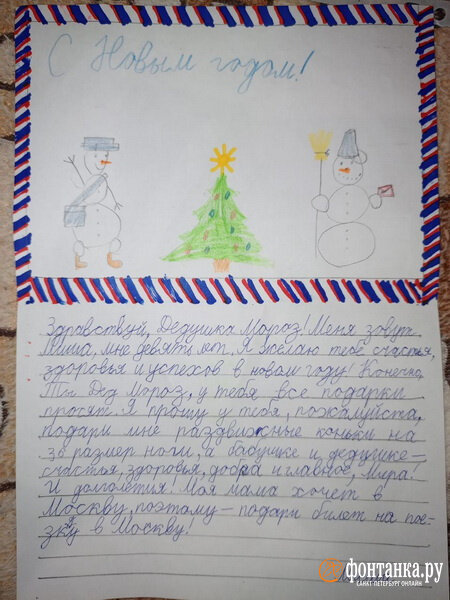 С Новым годом!
Здравствуй, Дедушка Мороз! Меня зовут
Миша, мне девять лет. Я желаю тебе счастья,
здоровья и успехов в новом году! Конечно,
Ты Дед Мороз, у тебя все подарки
просят. Я прошу у тебя, пожалуйста,
подари мне раздвижные коньки на
30 размер ноги, а бабушке и дедушке –
счастья, здоровья, добра и главное, Мира!
И долголетия! Моя мама хочет в
Москву, поэтому – подари билет на пое-
здку в Москву!
фонтанка.ру
САНКТ-ПЕТЕРБУРГ ОНЛАЙН